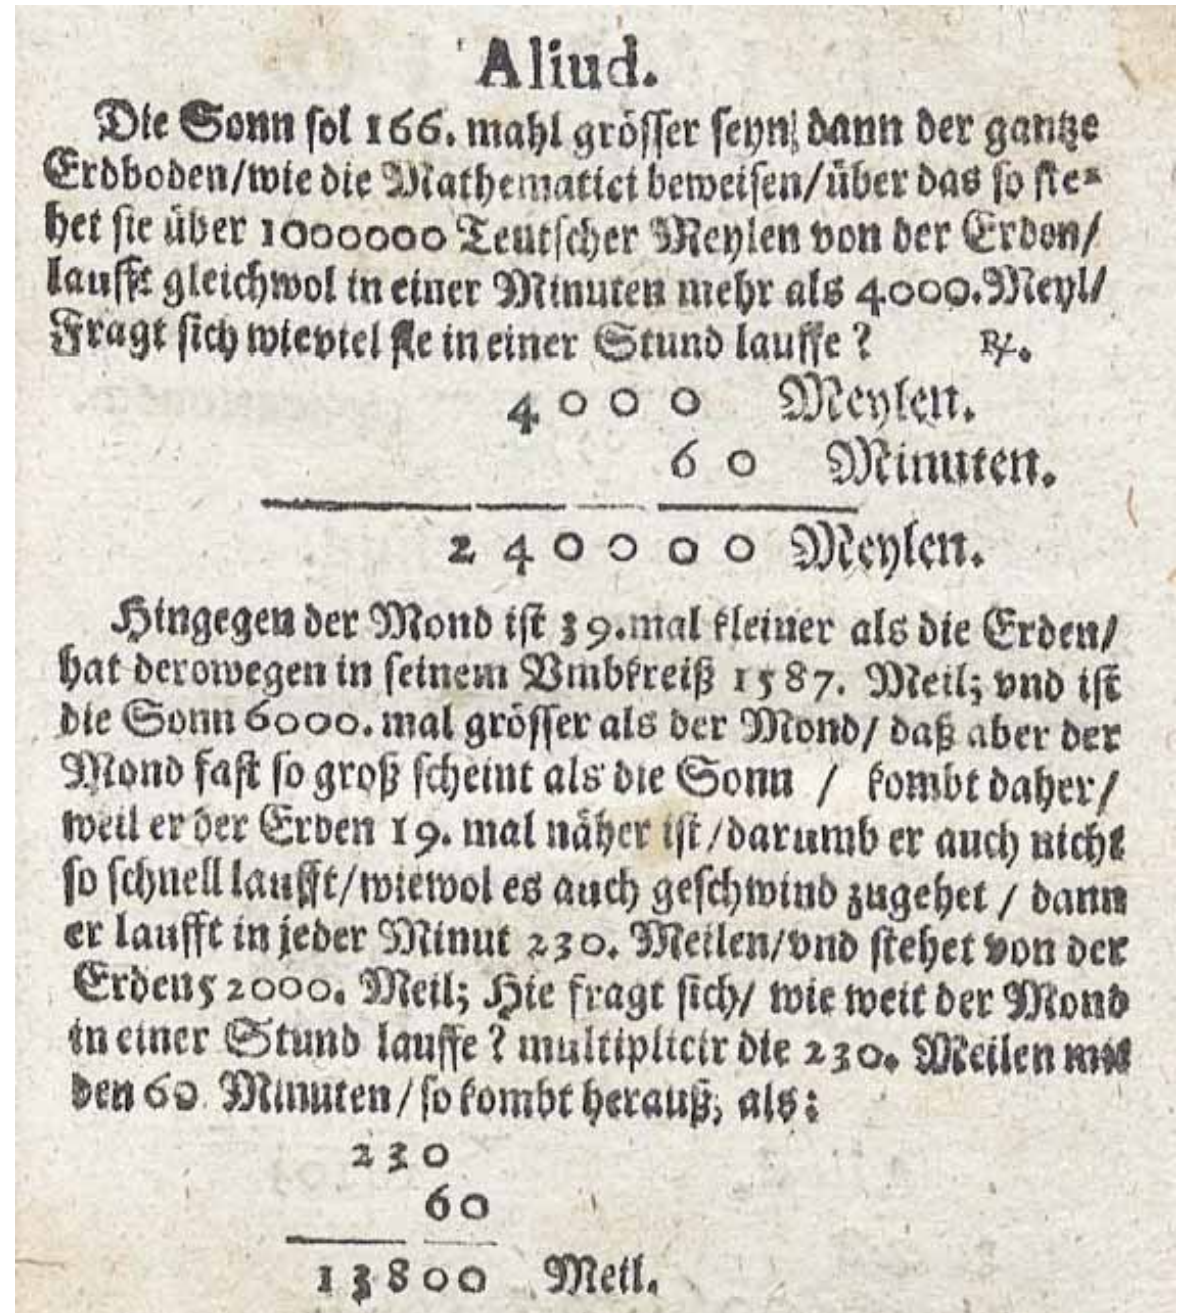 Aliud.
Die Sonn sol 166. mahl grösser seyn/ dann der gantze
Erdboden/wie die Mathematici beweisen/über das so ste-
het sie über 1000000 Teutscher Meylen von der Erden/
laufft gleichwol in einer Minuten mehr als 4000. Meyl/
Fragt sich wieviel sie in einer Stund lauffe? ℞.
4000 Meylen.
60 Minuten.
240000 Meylen.
Hingegen der Mond ist 39.mal kleiner als die Erden/
hat derowegen in seinem Vmbkreiß 1587. Meil; vnd ist
die Sonn 6000. mal grösser als der Mond/ daß aber der
Mond fast so groß scheint als die Sonn / kombt daher/
weil er der Erden 19. mal näher ist/darumb er auch nicht
so schnell laufft/wiewol es auch geschwind zugehet / dann
er laufft in jeder Minut 230. Meilen/vnd stehet von der
Erden 52000. Meil; Hie fragt sich/ wie weit der Mond
in einer Stund lauffe? multiplicir die 230. Meilen mit
den 60 Minuten/so kombt herauß, als:
230
60
13800 Meil.